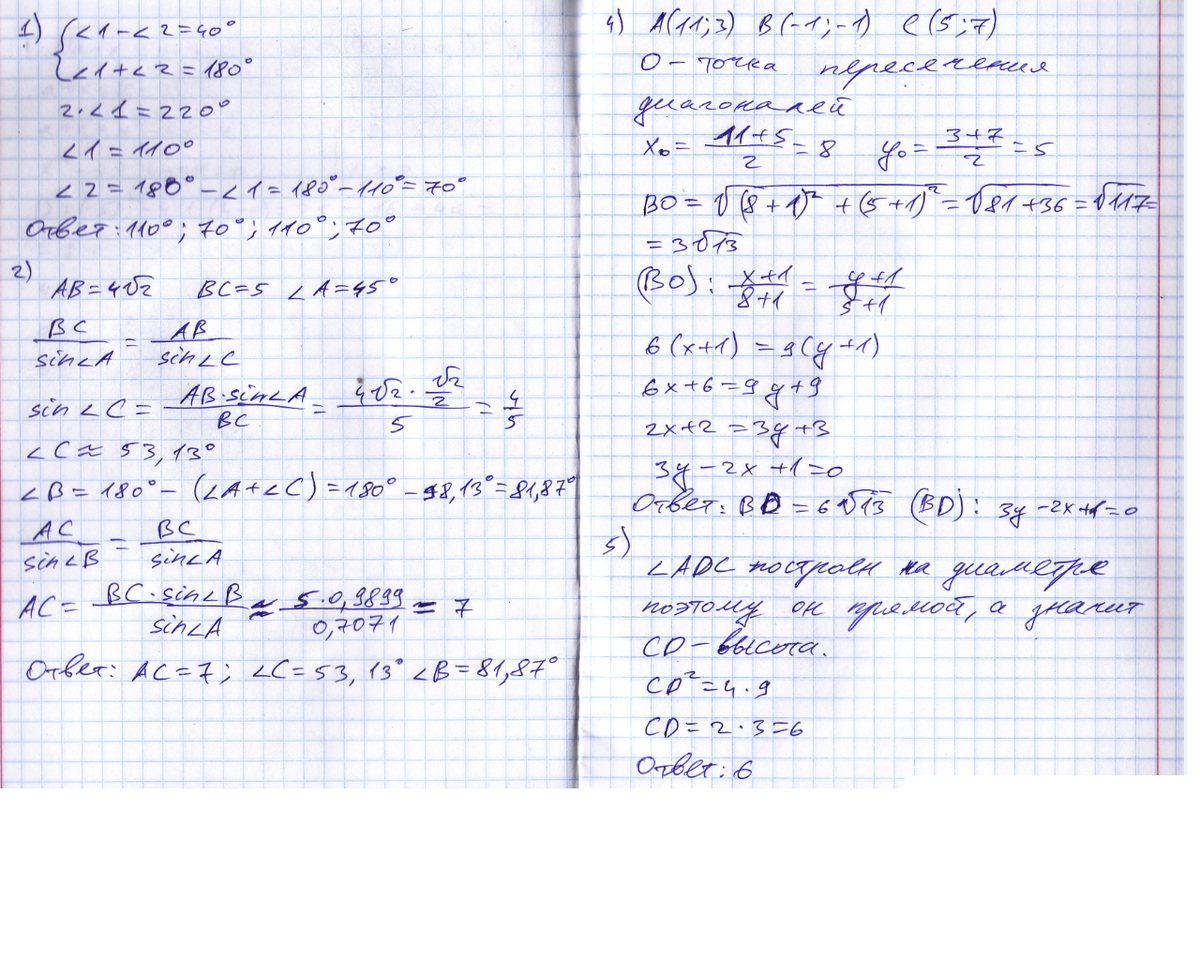 1) { ∠1 - ∠2 = 40°
∠1 + ∠2 = 180°
2·∠1 = 220°
∠1 = 110°
∠2 = 180° - ∠1 = 180° - 110° = 70°
Ответ: 110°; 70°; 110°; 70°
2)
AB = 4√2 BC = 5 ∠A = 45°
BC/sin∠A = AB/sin∠C
sin∠C = AB·sin∠A/BC = 4√2·√2/2/5 = 4/5
∠C ≈ 53,13°
∠B = 180° - (∠A + ∠C) = 180° - 98,13° = 81,87°
AC/sin∠B = BC/sin∠A
AC = BC·sin∠B/sin∠A ≈ 5·0,9899/0,7071 = 7
Ответ: AC = 7; ∠C = 53,13° ∠B = 81,87°
4) A(11;3) B(-1;-1) C(5;7)
O - точка пересечения
диагоналей
x₀ = 11+5/2 = 8 y₀ = 3+7/2 = 5
BO = √(8+1)² + (5+1)² = √81+36 = √117 =
= 3√13
(BO): x+1/8+1 = y+1/5+1
6(x+1) = 9(y+1)
6x+6 = 9y+9
2x+2 = 3y+3
3y - 2x + 1 = 0
Ответ: BD = 6√13 (BD): 3y - 2x + 1 = 0
5)
∠ADC построен на диаметре
поэтому он прямой, а значит
CD - высота.
CD² = 4·9
CD = 2·3 = 6
Ответ: 6